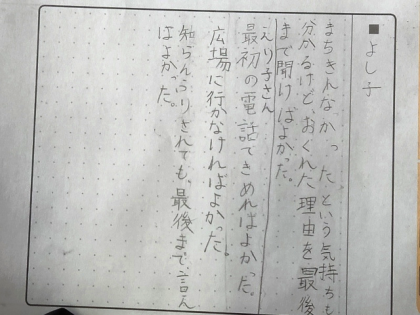 ■よし子
まちきれなかったという気持ちも
分かるけど、おくれた理由を最後
まで聞けばよかった。
えり子さん
最初の電話できめればよかった。
広場に行かなければよかった。
知らんふりされても、最後まで言え
ばよかった。